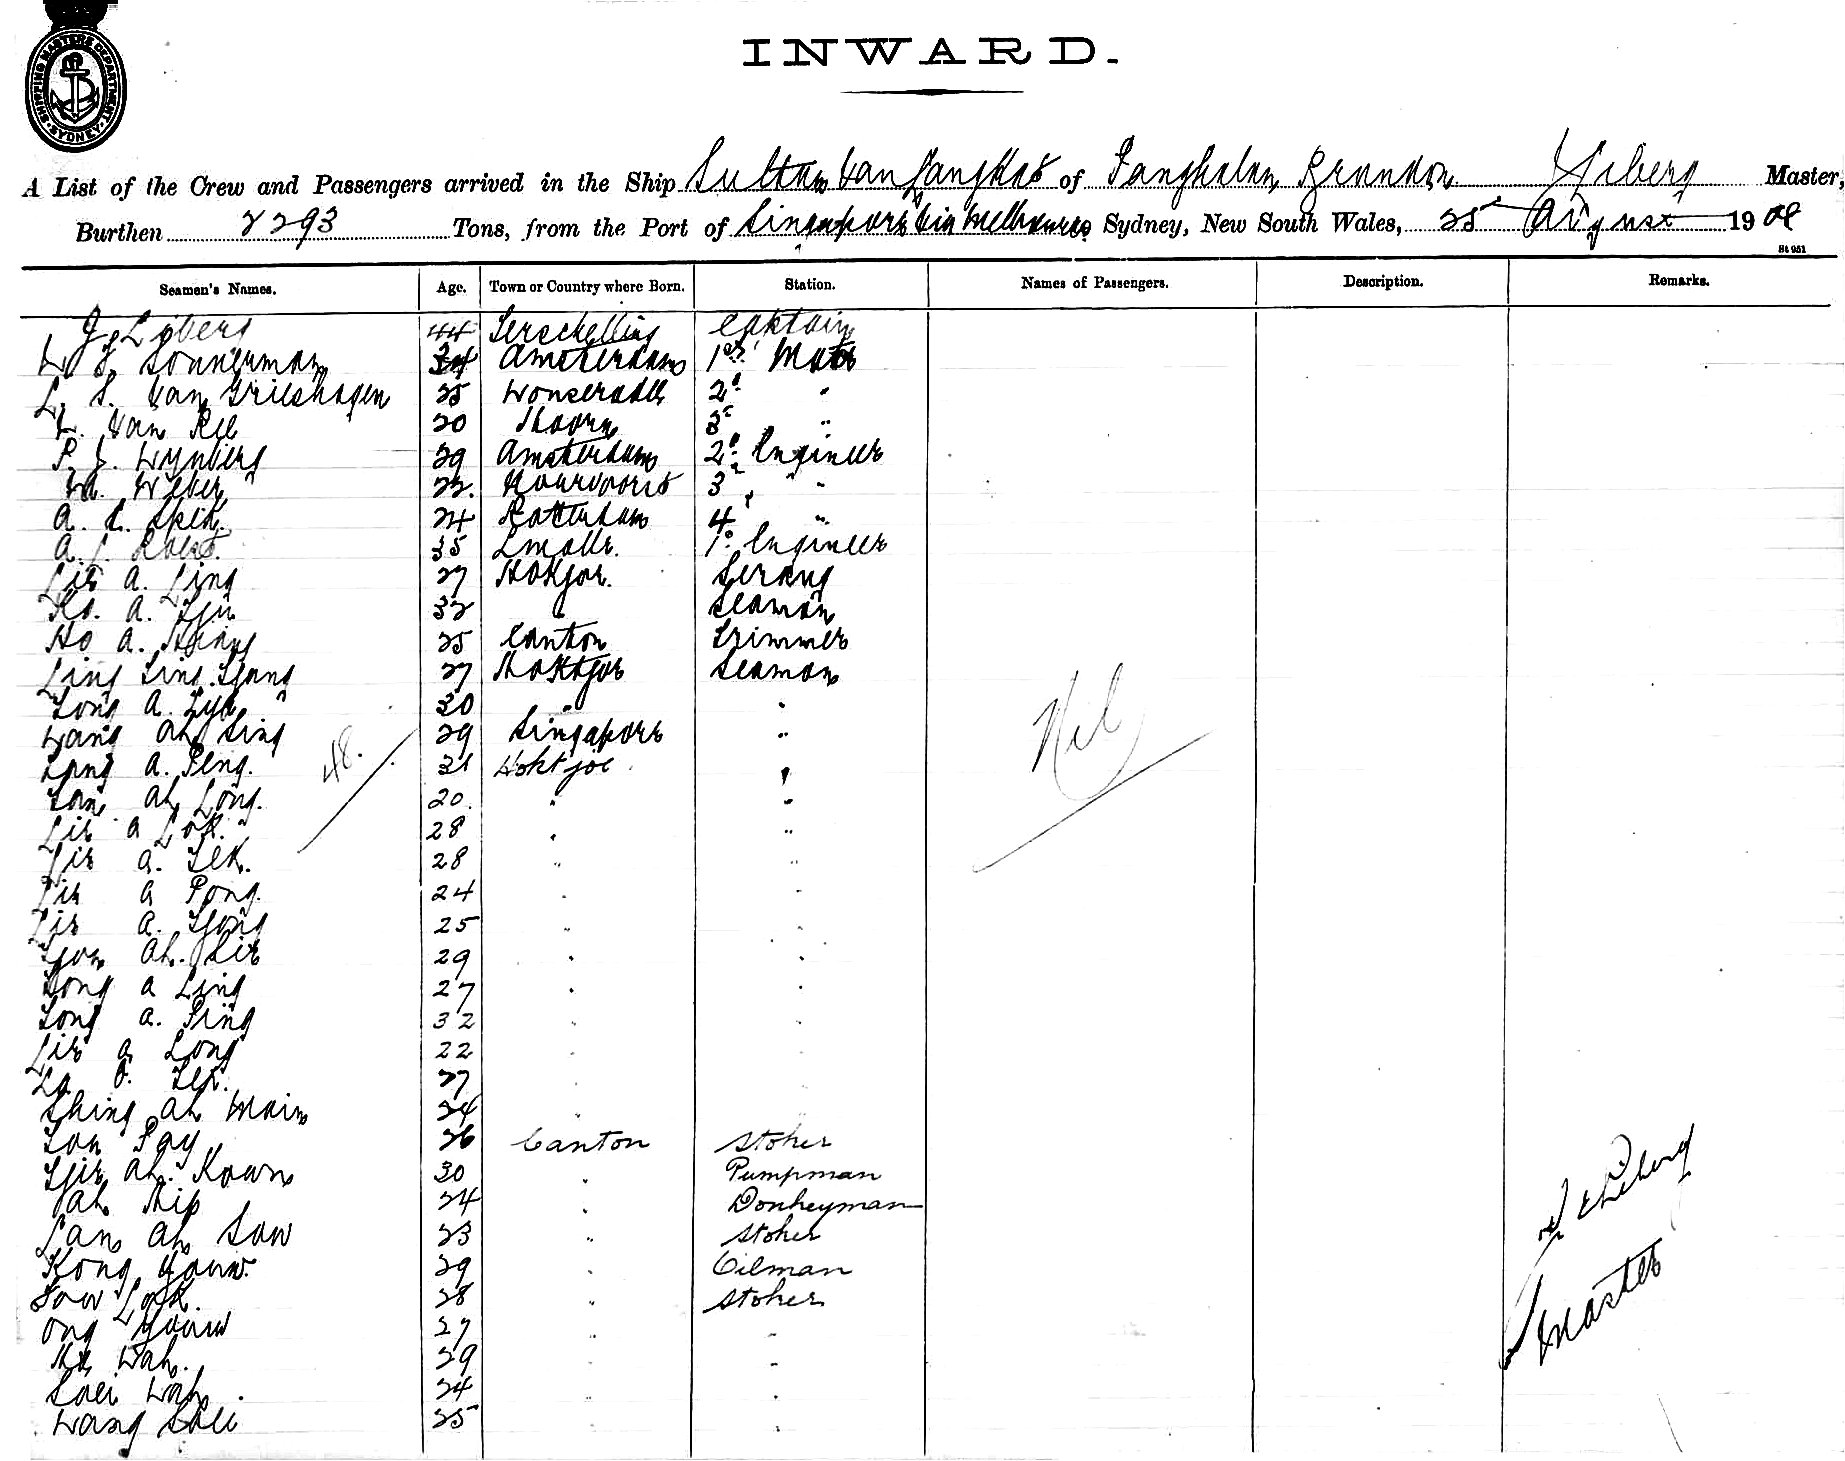 SHIPPING MASTERS DEPARTMENT
SYDNEY
INWARD.
A List of the Crew and Passengers arrived in the Ship Sultan van Langkat of Pangkalan Brandon Liberg Master,
Burthen 2293 Tons, from the Port of Singapore via Melbourne Sydney, New South Wales, 25 August 1908
St 951
Seamen's Names. Age. Town or Country where Born. Station. Names of Passengers. Description. Remarks.
J. Liberg 44 Terschelling Captain
J. Sonnerman 34 Amsterdam 1st Mate
L. S. van Grieshagen 25 Wonseradell 2d "
van Ree 20 Hoorn 3 "
P. J. Wynberg 29 Amsterdam 2d Engineer
Weber 22. 3 "
A. C. Spek. 24 Rotterdam 4 "
A. 35 Zwolle. 1e Engineer
Lie A. Ling 27 Hokjoe. Serang
Ho. A. 32 " Seaman
Ho A. 25 Canton Trimmer
Ling Ling Tjang 27 Hoktjoe Seaman
Tong A. 30 " "
Wang Ah Sing 29 Singapore "
Long A. Peng. 31 Hoktjoe "
Tan Ah Long. 20. " "
Lie A Lok. 28 " "
Lie A. Tek. 28 " "
Lie A Pong. 24 " "
Lie A. Tjong 25 " "
Tjon Ah. Lie 29 " "
Tong A Ling 27 " "
Tong A. Ping 32 " "
Lie A Long 22 " "
27 " "
Ching Ah Main 24 " "
Ton Pay 26 Canton Stoker
Tjie Ah. Kown 30 " Pumpman
Ah Hip 24 " Donkeyman
Lan Ah Sow 23 " Stoker
Kong Youw. 29 " Oilman
Sow Lok. 28 " Stoker
Ong Youw 27 " "
Wah. 29 " "
Soei Wah. 24 " "
Wang Soei 25 " "
48.
Nil
Liberg
Master